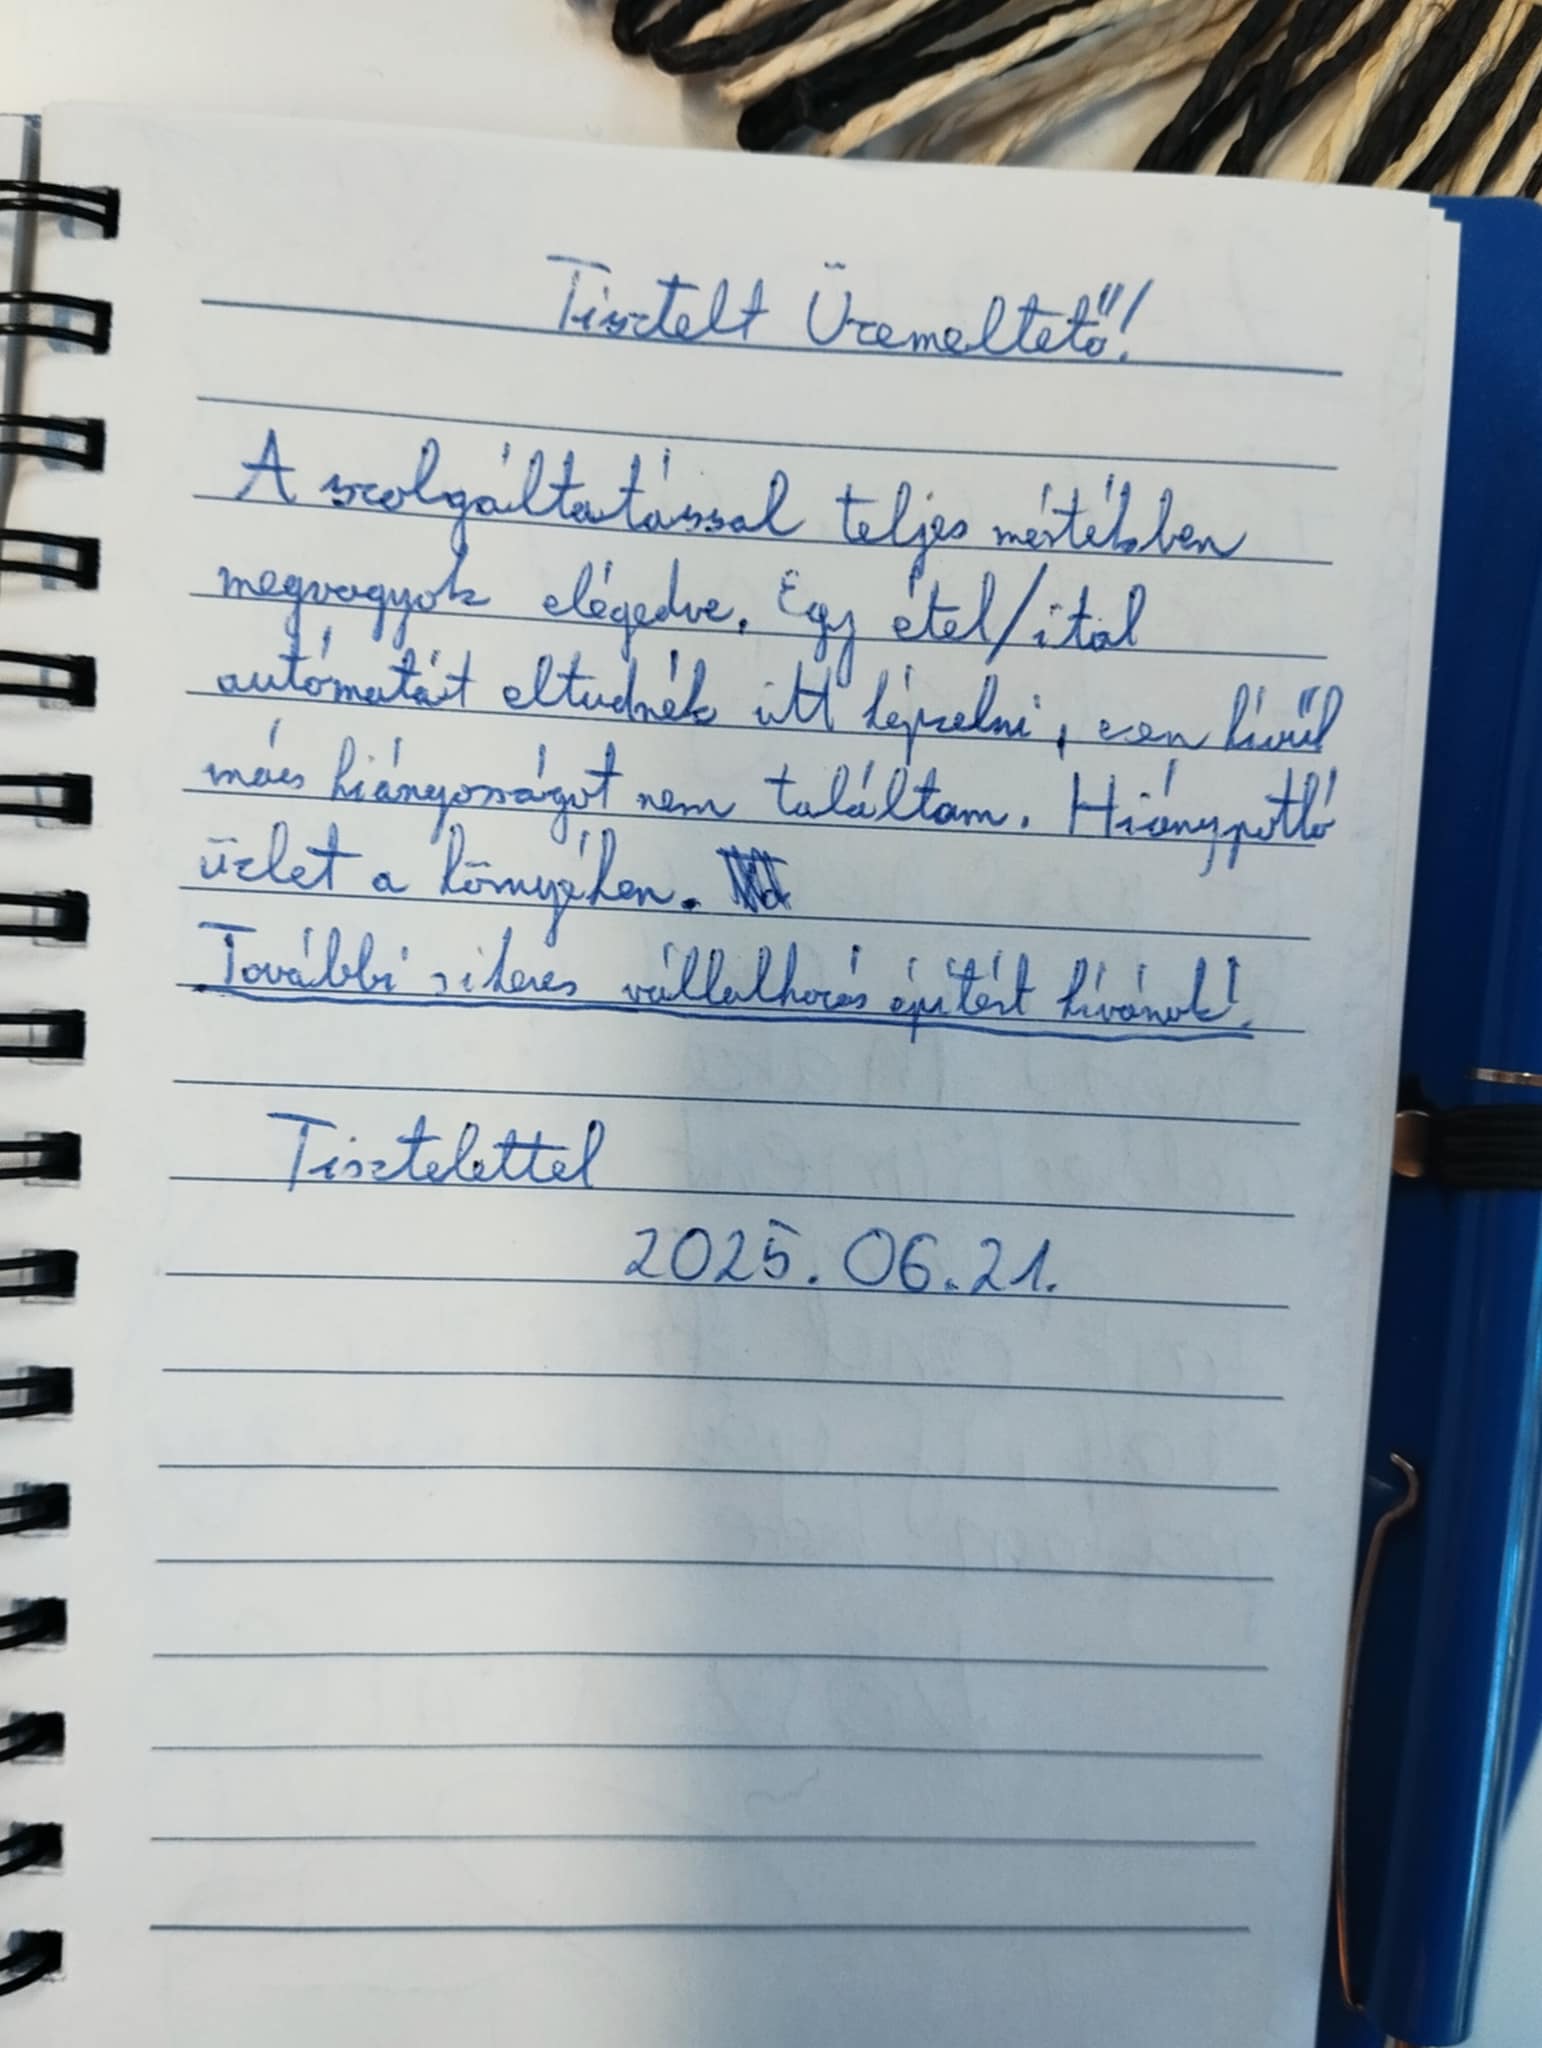 Tisztelt Üzemeltető!
A szolgáltatással teljes mértékben
megvagyok elégedve. Egy étel/ital
autómatát eltudnék itt képzelni, ezen kívűl
más hiányosságot nem találtam. Hiánypótló
üzlet a környéken.
További sikeres vállalkozás építést kívánok!
Tisztelettel
2025.06.21.